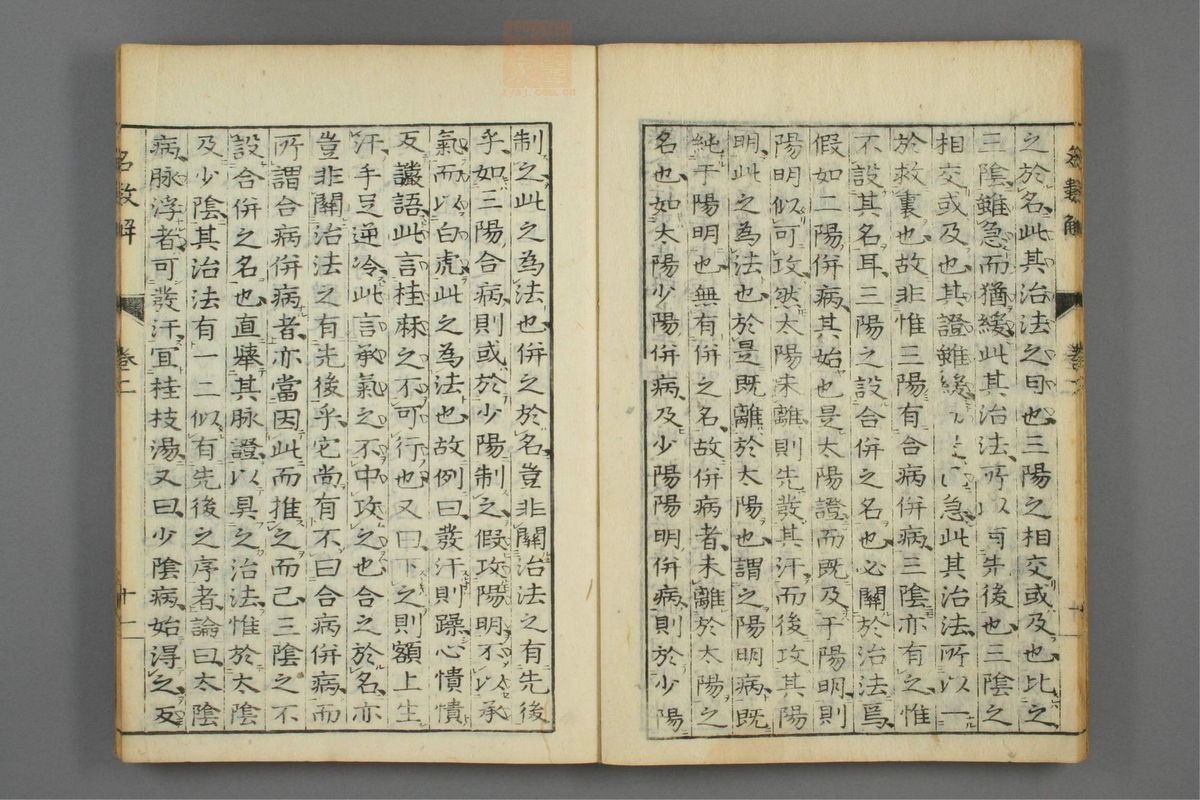 之於名此其治法之可也三陽之相交或及也比之
三陰雖急而猶緩此其治法所以有先後也三陰之
相交或及也其證雖緩 急此其治法所以一
於救裏也故非惟三陽有合病併病三陰亦有之惟
不設其名耳三陽之設合併之名也必關於治法焉
假如二陽併病其始也是太陽證而既及于陽明則
陽明似可攻然太陽未離則先發其汗而後攻其陽
明此之為法也於是既離於太陽也謂之陽明病既
純于陽明也無有併之名故併病者未離於太陽之
名也如太陽少陽併病及少陽陽明併病則於少陽
制之此之為法也併之於名豈非關治法之有先後
乎如三陽合病則或於少陽制之假攻陽明不以承
氣而以白虎此之為法也故例曰發汗則躁心憒憒
反讝語此言桂麻之不可行也又曰下之則額上生
汗手足逆冷此言承氣之不中攻之也合之於名亦
豈非關治法之有先後乎它尚有不曰合病併病而
所謂合病併病者亦當因此而推之而已三陰之不
設合併之名也直舉其脉證以具之治法惟於太陰
及少陰其治法有一二似有先後之序者論曰太陰
病脉浮者可發汗宜桂枝湯又曰少陰病始得之反
名數解
卷二
十一